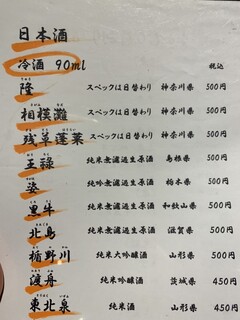 日本酒
冷酒 90ml 税込
隆 スペックは日替わり 神奈川県 500円
相模灘 スペックは日替わり 神奈川県 500円
残草蓬莱 スペックは日替わり 神奈川県 500円
王祿 純米無濾過生原酒 島根県 500円
姿 純吟無濾過生原酒 栃木県 500円
黒牛 純米無濾過生原酒 和歌山県 500円
北島 純米無濾過生原酒 滋賀県 500円
楯野川 純米大吟醸 山形県 500円
渡舟 純米吟醸 茨城県 450円
東北泉 純米酒 山形県 450円